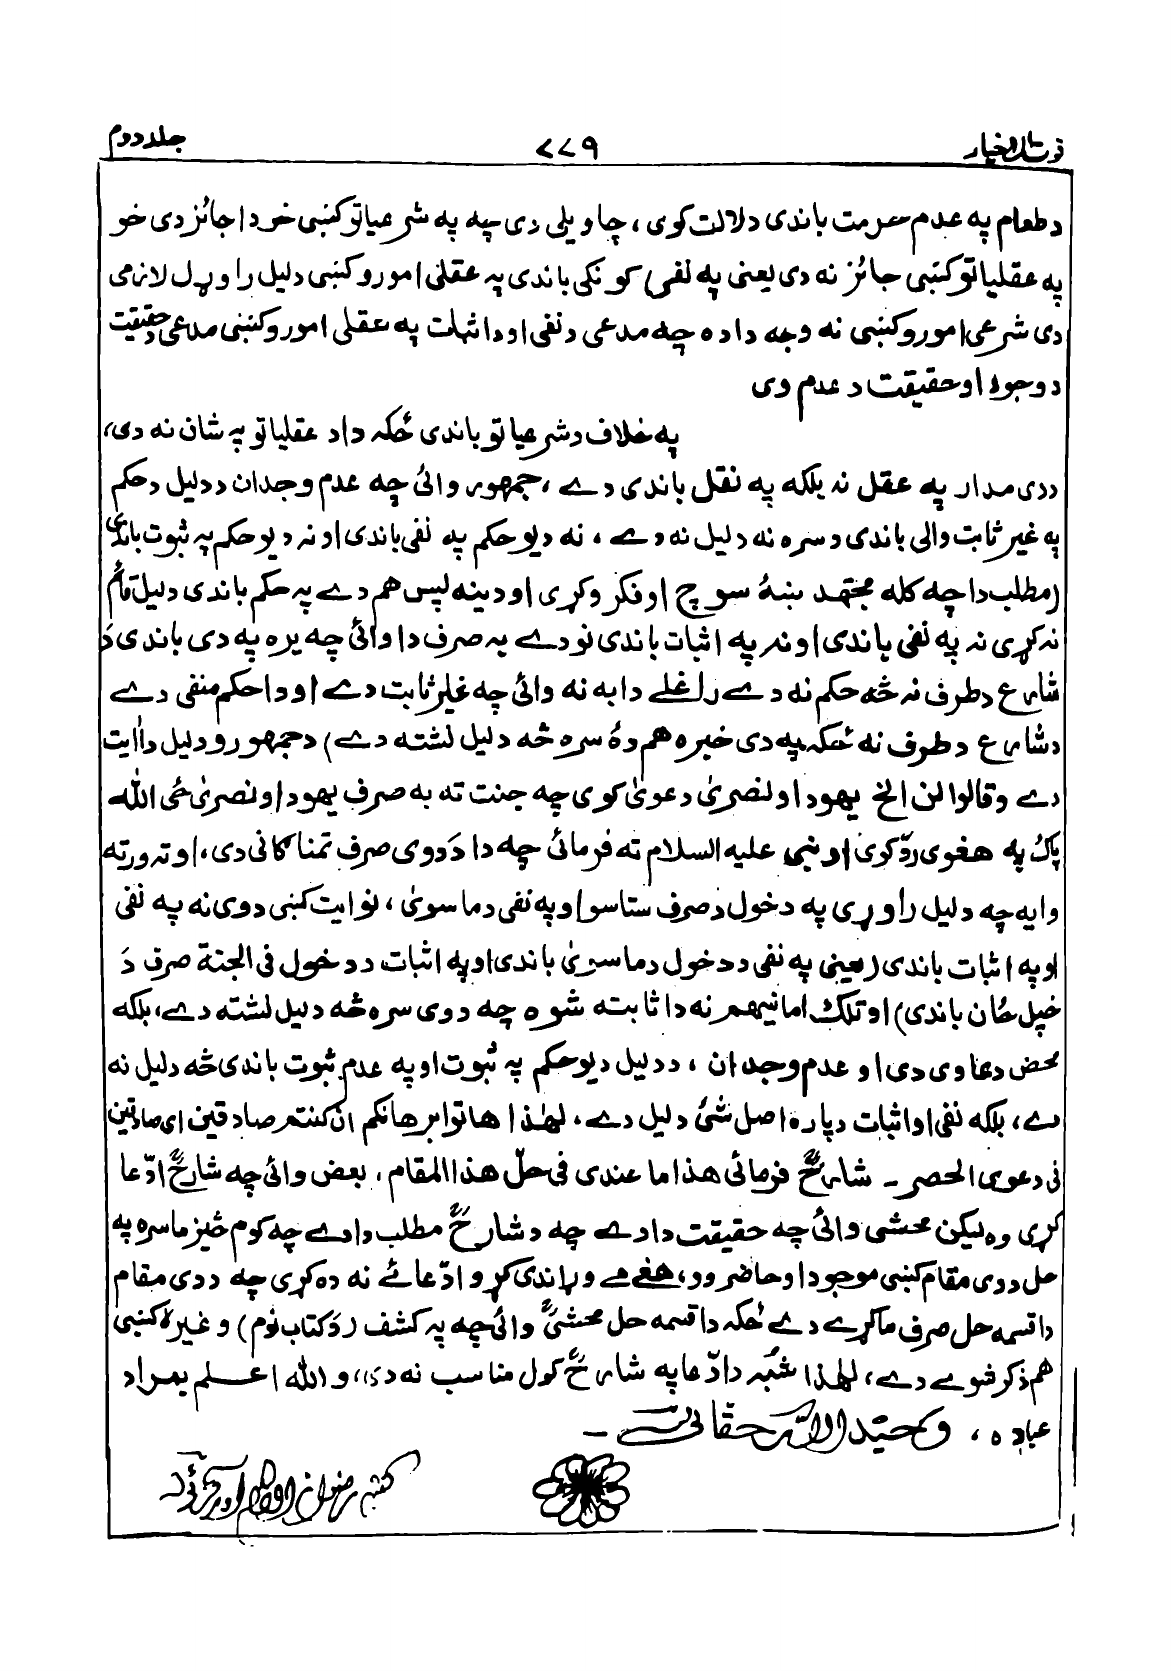 جلد دوم
۷۷۹
د طعام په عدم حرمت باندی دلالت کوی، چا ویلی دی چه په شرعیاتو کښی خو دا جائز دی خو
په عقلیاتو کښی جائز نه دی یعنی په نفی کونکی باندی په عقلی امورو کښی دلیل را وړل لازمی
دی شرعی امورو کښی نه وجه داده چه مدعی د نفی او د اثبات په عقلی امورو کښی مدعی د حقیقت
د وجود او حقیقت د عدم وی
په خلاف د شرعیاتو باندی ځکه دا د عقلیاتو په شان نه دی،
ددی مدار په عقل نه بلکه په نقل باندی دے، جمهور وائی چه عدم وجدان د دلیل د حکم
په غیر ثابت والی باندی د سره نه دلیل نه دے، نه دیو حکم په نفی باندی او نه دیو حکم په ثبوت باندی
(مطلب دا چه کله مجتهد ښهٔ سوچ او فکر وکړی او د ینه پس هم دے په حکم باندی دلیل قائم
نه کړی نه په نفی باندی او نه په اثبات باندی نو دے به صرف دا وائی چه یره په دی باندی دَ
شارع د طرف نه څه حکم نه دے راغلے دا به نه وائی چه غیر ثابت دے او دا حکم منفی دے
د شارع د طرف نه ځکه په دی خبره هم دهٔ سره څه دلیل نشته دے) د جمهورو دلیل دا اٰیت
دے وقالوا لن الخ یهود او نصریٰ دعویٰ کوی چه جنت ته به صرف یهود او نصریٰ ځی اللّٰه
پاک په هغوی ردّ کوی او نبی علیه السلام ته فرمائی چه دا دَ دوی صرف تمناګانی دی، او ته ورته
وایه چه دلیل را وړی په دخول دَ صرف ستاسو او په نفی د ما سویٰ، نو ایت کښی دوی نه په نفی
او په اثبات باندی (یعنی په نفی د دخول د ما سویٰ باندی او په اثبات د دخول فی الجنة صرف دَ
خپل ځان باندی) او تلک امانیهم نه دا ثابته شوه چه دوی سره څه دلیل نشته دے، بلکه
محض دعاوی دی او عدم وجدان، د دلیل دیو حکم په ثبوت او په عدم ثبوت باندی څه دلیل نه
دے، بلکه نفی او اثبات دپاره اصل شئ دلیل دے، لهٰذا هاتوا برهانکم ان کنتم صادقین ای صادقین
فی دعوی الحصر ـ شارحؒ فرمائی هذا ما عندی فی حلّ هذا المقام، بعض وائی چه شارحؒ ادّعا
کړی وه لیکن محشی وائی چه حقیقت دا دے چه د شارحؒ مطلب دا دے چه کوم څیز ما سره په
حل ددی مقام کښی موجود او حاضر وو، هغه مے وړاندی کړو ادّعائے نه ده کړی چه ددی مقام
دا قسمه حل صرف ما کړے دے ځکه دا قسمه حل محشیؒ وائی چه په کشف (دَ کتاب نوم) وغیره کښی
هم ذکر شوے دے، لهٰذا شبّه د ادّعا په شارحؒ کول مناسب نه دی،، والله اعلم بمراد
عباده، وحید اللّٰه حقانی ـ